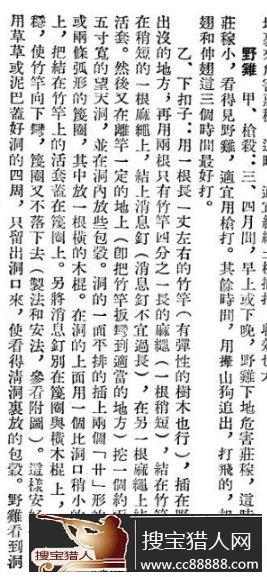 野雞　甲、槍殺：三、四月間，早上或下晚，野雞下地危害莊稼，這時
莊稼小，看得見野雞，適宜用槍打。其餘時間，用攆山狗追出，打飛的，起
翅和伸翅這三個時間最好打。
乙、下扣子：用一根長一丈左右的竹竿（有彈性的樹木也行），插在野
出沒的地方；再用兩根只有竹竿四分之一長的麻繩（一根稍短），結在竹竿
在稍短的一根麻繩上，結上消息釘（消息釘不宜過長），在另一根麻繩上結
活套。然後又在離竿一定的地上（卽把竹竿扳彎到適當的地方）挖一個約
五寸寬的望天洞，並在洞內放些包穀。洞的一面平排的插上兩個「卄」形的
或兩條弧形的篾圈，其中放一根橫的木棍。在洞的上面用一個比洞口稍小的
上，把結在竹竿上的活套蓋在篾圈上。另將消息釘別在篾圈與橫木棍上，
穩，使竹竿向下彎，篾圈又不落下去（製法和安法，參看附圖）。這樣安
用草草或泥巴蓋好洞的四周，只留出洞口來，使看得清洞裏放的包穀。野雞看到洞
搜宝猎人
搜宝猎人网
www.cc88888.com